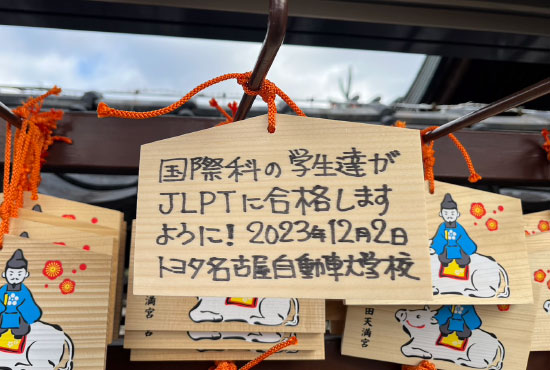 国際科の学生達が
JLPTに合格します
ように！2023年12月2日
トヨタ名古屋自動車大学校
天満宮
田天満宮